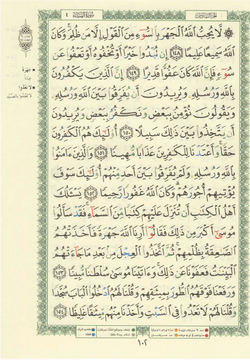 لَّا يُحِبُّ ٱللَّهُ ٱلْجَهْرَ بِٱلسُّوٓءِ مِنَ ٱلْقَوْلِ إِلَّا مَن ظُلِمَ ۚ وَكَانَ
ٱللَّهُ سَمِيعًا عَلِيمًا ١٤٨ إِن تُبْدُوا۟ خَيْرًا أَوْ تُخْفُوهُ أَوْ تَعْفُوا۟ عَن
سُوٓءٍ فَإِنَّ ٱللَّهَ كَانَ عَفُوًّا قَدِيرًا ١٤٩ إِنَّ ٱلَّذِينَ يَكْفُرُونَ
بِٱللَّهِ وَرُسُلِهِۦ وَيُرِيدُونَ أَن يُفَرِّقُوا۟ بَيْنَ ٱللَّهِ وَرُسُلِهِۦ
وَيَقُولُونَ نُؤْمِنُ بِبَعْضٍ وَنَكْفُرُ بِبَعْضٍ وَيُرِيدُونَ
أَن يَتَّخِذُوا۟ بَيْنَ ذَٰلِكَ سَبِيلًا ١٥٠ أُو۟لَـٰٓئِكَ هُمُ ٱلْكَـٰفِرُونَ
حَقًّا ۚ وَأَعْتَدْنَا لِلْكَـٰفِرِينَ عَذَابًا مُّهِينًا ١٥١ وَٱلَّذِينَ ءَامَنُوا۟
بِٱللَّهِ وَرُسُلِهِۦ وَلَمْ يُفَرِّقُوا۟ بَيْنَ أَحَدٍ مِّنْهُمْ أُو۟لَـٰٓئِكَ سَوْفَ
يُؤْتِيهِمْ أُجُورَهُمْ ۗ وَكَانَ ٱللَّهُ غَفُورًا رَّحِيمًا ١٥٢ يَسْـَٔلُكَ
أَهْلُ ٱلْكِتَـٰبِ أَن تُنَزِّلَ عَلَيْهِمْ كِتَـٰبًا مِّنَ ٱلسَّمَآءِ ۚ فَقَدْ سَأَلُوا۟
مُوسَىٰٓ أَكْبَرَ مِن ذَٰلِكَ فَقَالُوٓا۟ أَرِنَا ٱللَّهَ جَهْرَةً فَأَخَذَتْهُمُ
ٱلصَّـٰعِقَةُ بِظُلْمِهِمْ ۚ ثُمَّ ٱتَّخَذُوا۟ ٱلْعِجْلَ مِنۢ بَعْدِ مَا جَآءَتْهُمُ
ٱلْبَيِّنَـٰتُ فَعَفَوْنَا عَن ذَٰلِكَ ۚ وَءَاتَيْنَا مُوسَىٰ سُلْطَـٰنًا مُّبِينًا ١٥٣
وَرَفَعْنَا فَوْقَهُمُ ٱلطُّورَ بِمِيثَـٰقِهِمْ وَقُلْنَا لَهُمُ ٱدْخُلُوا۟ ٱلْبَابَ سُجَّدًا
وَقُلْنَا لَهُمْ لَا تَعْدُوا۟ فِى ٱلسَّبْتِ وَأَخَذْنَا مِنْهُم مِّيثَـٰقًا غَلِيظًا ١٥٤
١٠٢